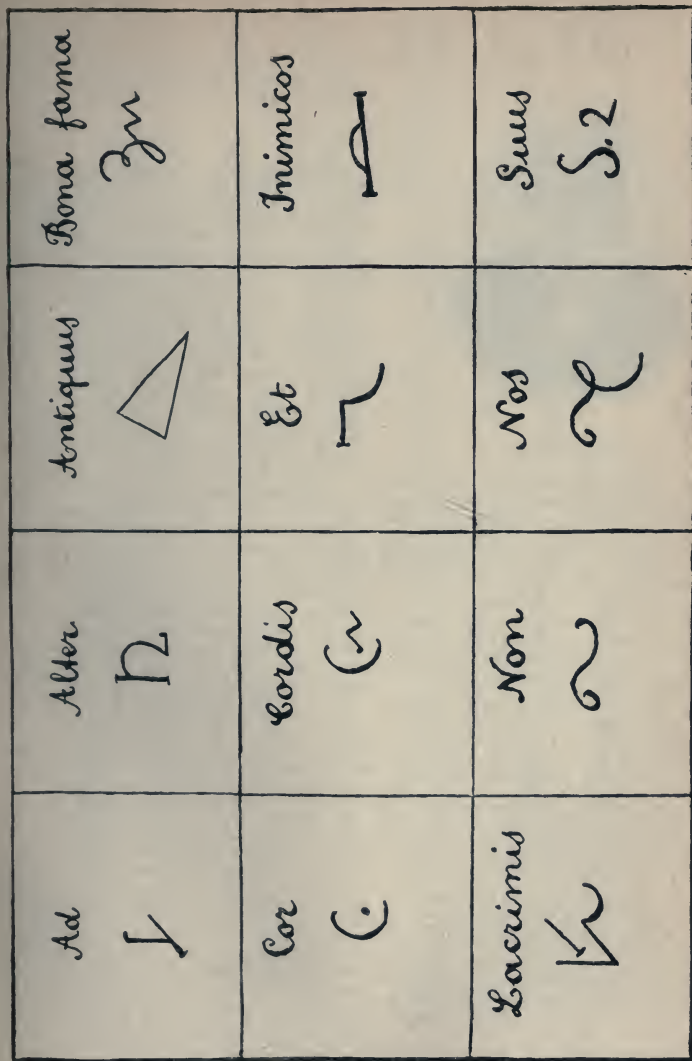 Ad
Alter
Antiquus
Bona fama
Cor
Cordis
Et
Inimicos
Lacrimis
Non
Nos
Suus
S.2